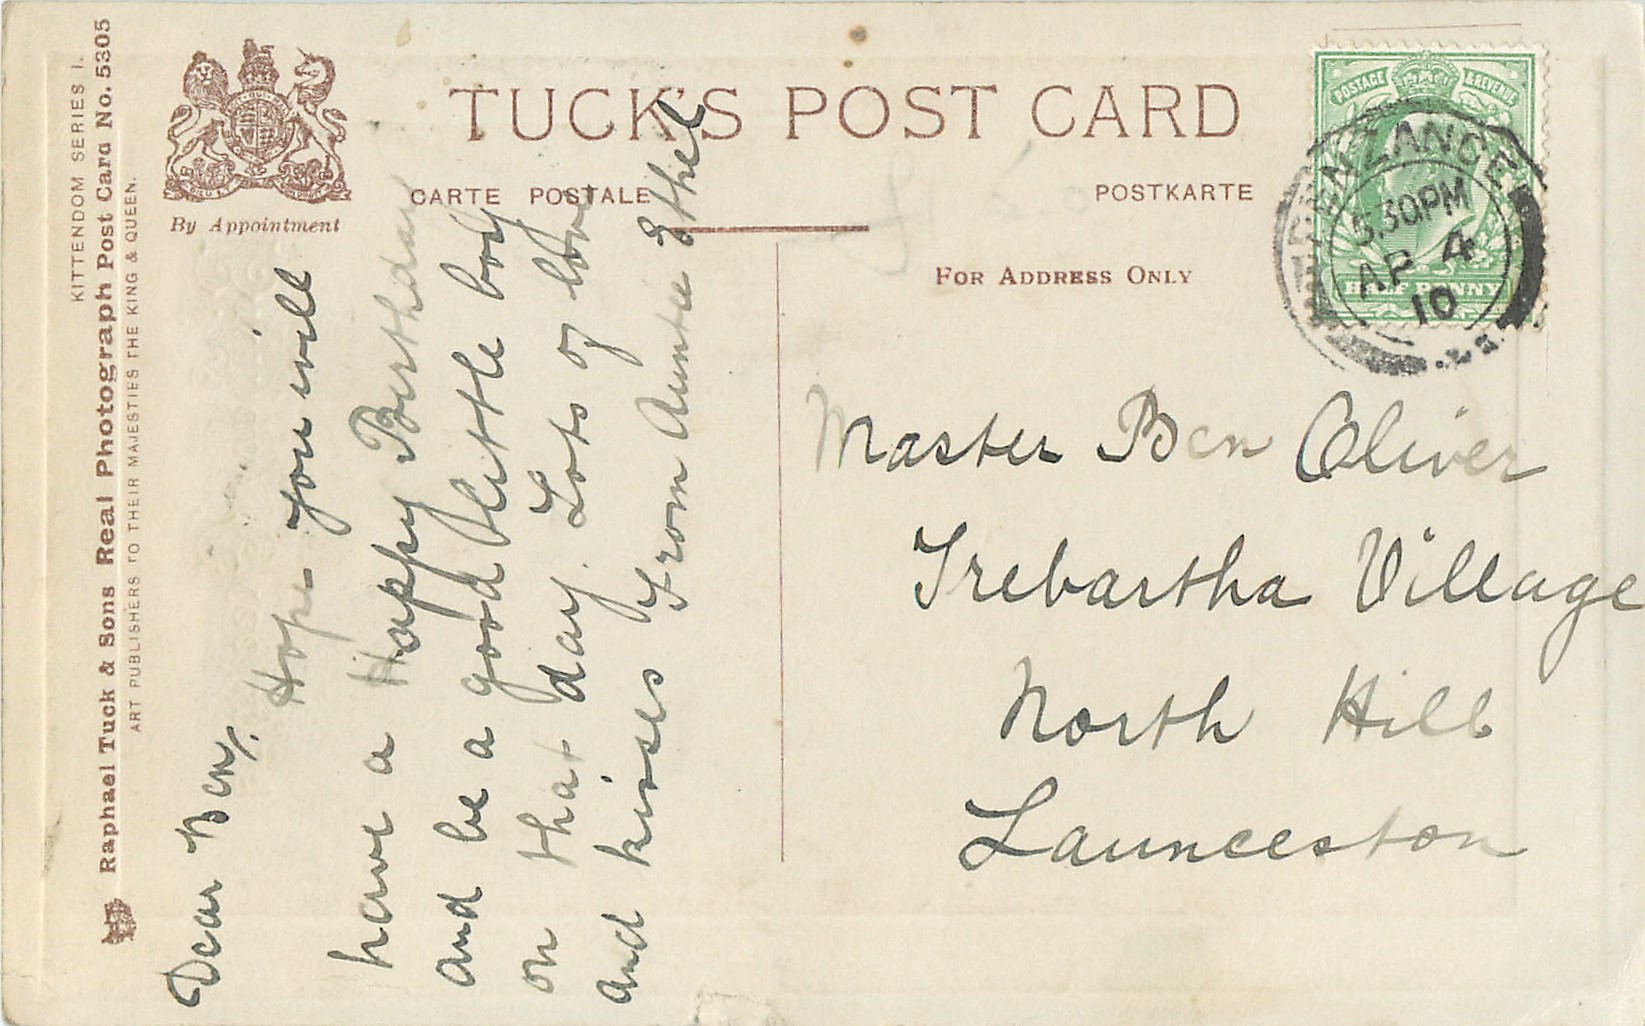 KITTENDOM SERIES I.
Raphael Tuck & Sons Real Photograph Post Card No. 5305
ART PUBLISHERS TO THEIR MAJESTIES THE KING & QUEEN.
By Appointment
TUCK'S POST CARD
CARTE POSTALE
POSTKARTE
FOR ADDRESS ONLY
POSTAGE & REVENUE
HALF PENNY
PENZANCE
5.30PM
AP 4
10
Dear Ben,
Hope you will
have a Happy Birthday
and be a good little boy
on that day. Lots of love
and kisses From Auntie Ethel
Master Ben Oliver
Trebartha Village
North Hill
Launceston